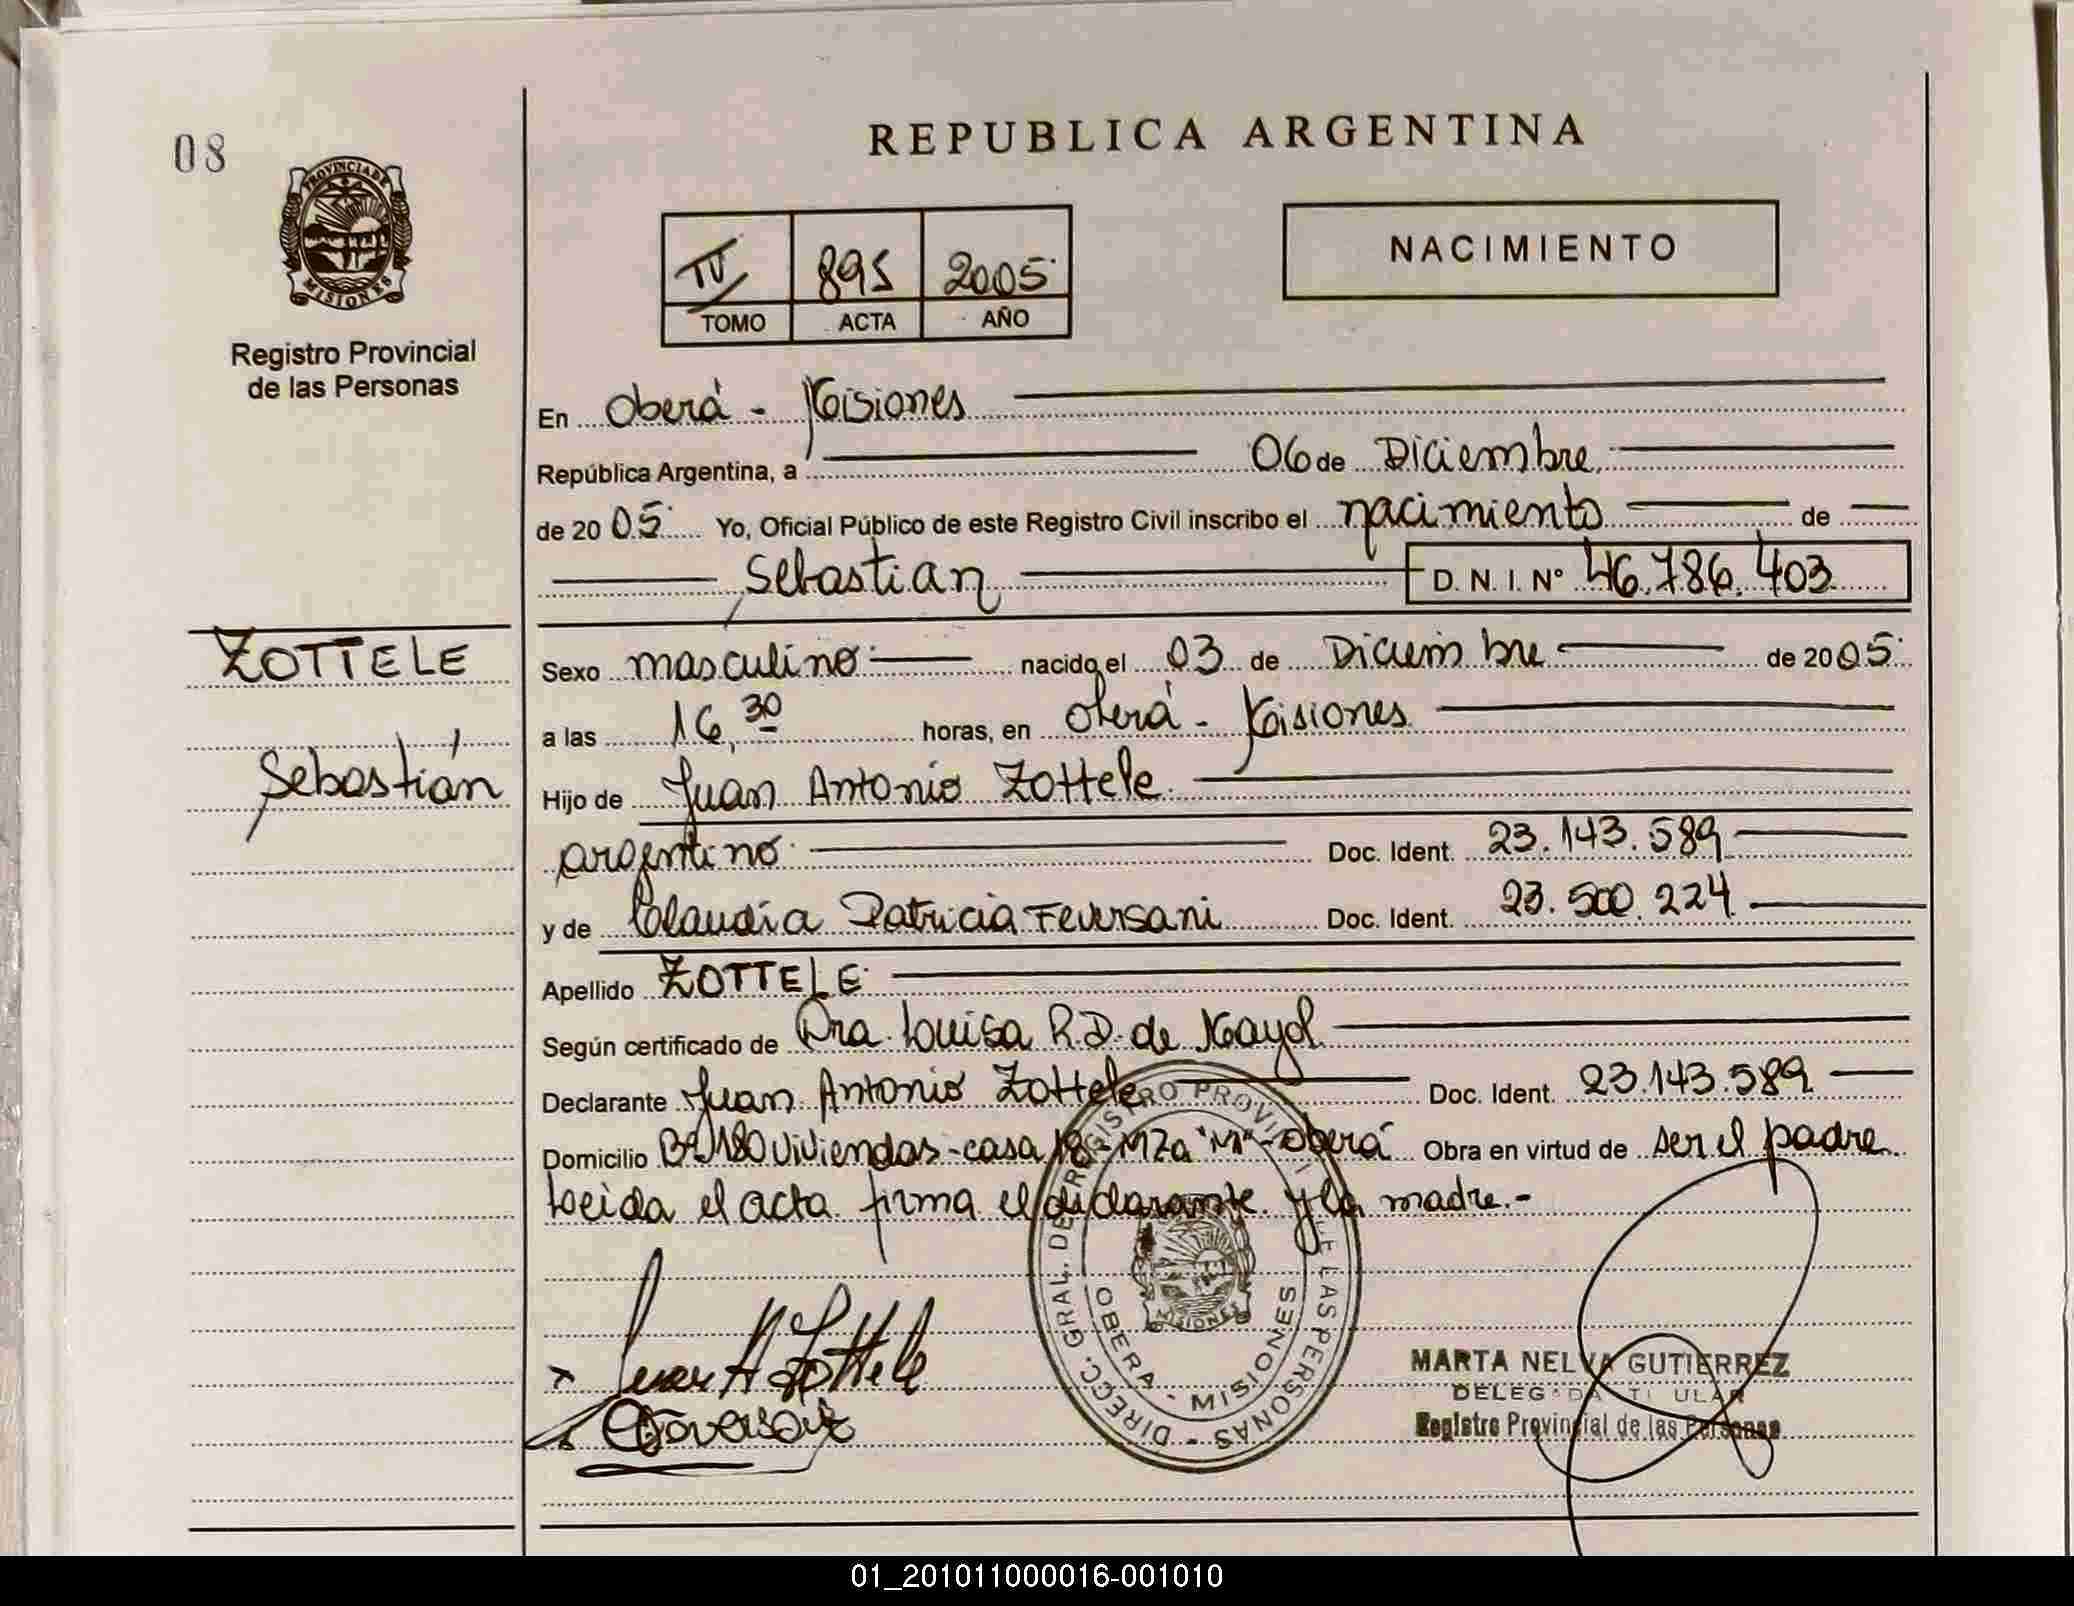 08
PROVINCIA DE
MISIONES
Registro Provincial
de las Personas
REPUBLICA ARGENTINA
IV 895 2005
TOMO ACTA AÑO
NACIMIENTO
En Oberá - Misiones
República Argentina, a 06 de Diciembre
de 2005 Yo, Oficial Público de este Registro Civil inscribo el nacimiento de
Sebastian D. N. I. Nº 46.786.403
ZOTTELE
Sebastián
Sexo masculino nacido el 03 de Diciembre de 2005
a las 16,30 horas, en Oberá - Misiones
Hijo de Juan Antonio Zottele
argentino Doc. Ident. 23.143.589
y de Claudia Patricia Feversani Doc. Ident. 23.500.224
Apellido ZOTTELE
Según certificado de Dra. Luisa R.D. de Mayol
Declarante Juan Antonio Zottele Doc. Ident. 23.143.589
Domicilio Bº 180 viviendas - casa 18 - Mza "M" - Oberá Obra en virtud de ser el padre
Leida el acta firma el declarante y la madre.-
Juan A Zottele
DIRECC. GRAL. DE REGISTRO PROVINCIAL DE LAS PERSONAS
OBERA - MISIONES
MISIONES
MARTA NELVA GUTIERREZ
DELEGADA TITULAR
Registro Provincial de las Personas
01_201011000016-001010